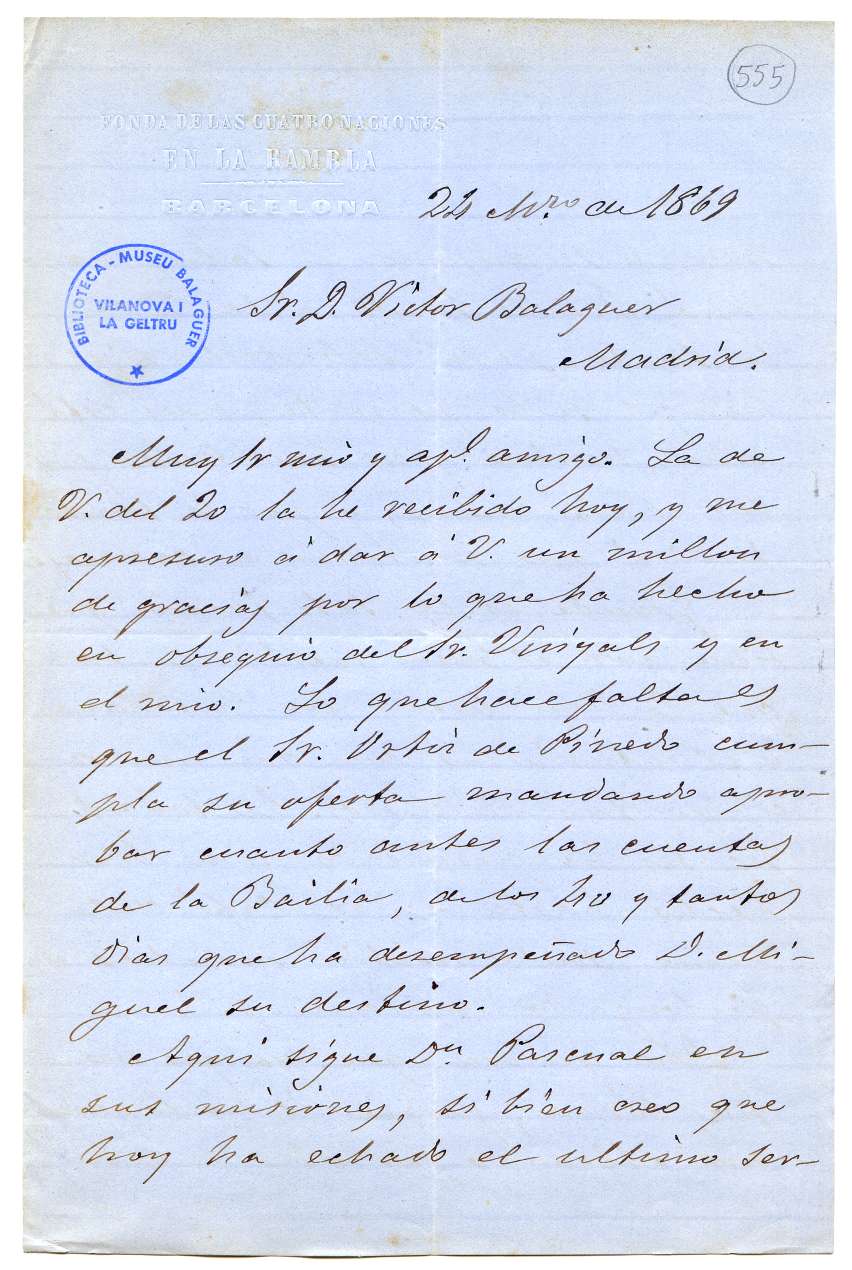 555
FONDA DE LAS CUATRO NACIONES
EN LA RAMBLA
BARCELONA
22 Mzo de 1869
BIBLIOTECA - MUSEU BALAGUER
VILANOVA I
LA GELTRU
Sr. D. Victor Balaguer
Madrid.
Muy Sr mio y apl. amigo. La de
V. del 20 la he recibido hoy, y me
apresuro á dar á V. un millon
de gracias por lo que ha hecho
en obsequio del Sr. Vinyals y en
el mio. Lo que hace falta es
que el Sr. Ortiz de Pinedo cum-
pla su oferta mandando apro-
bar cuanto antes las cuentas
de la Bailia, de los 40 y tantos
dias que ha desempeñado D. Mi-
guel su destino.
Aqui sigue Dn Pascual en
sus misiones, si bien creo que
hoy ha echado el ultimo ser-